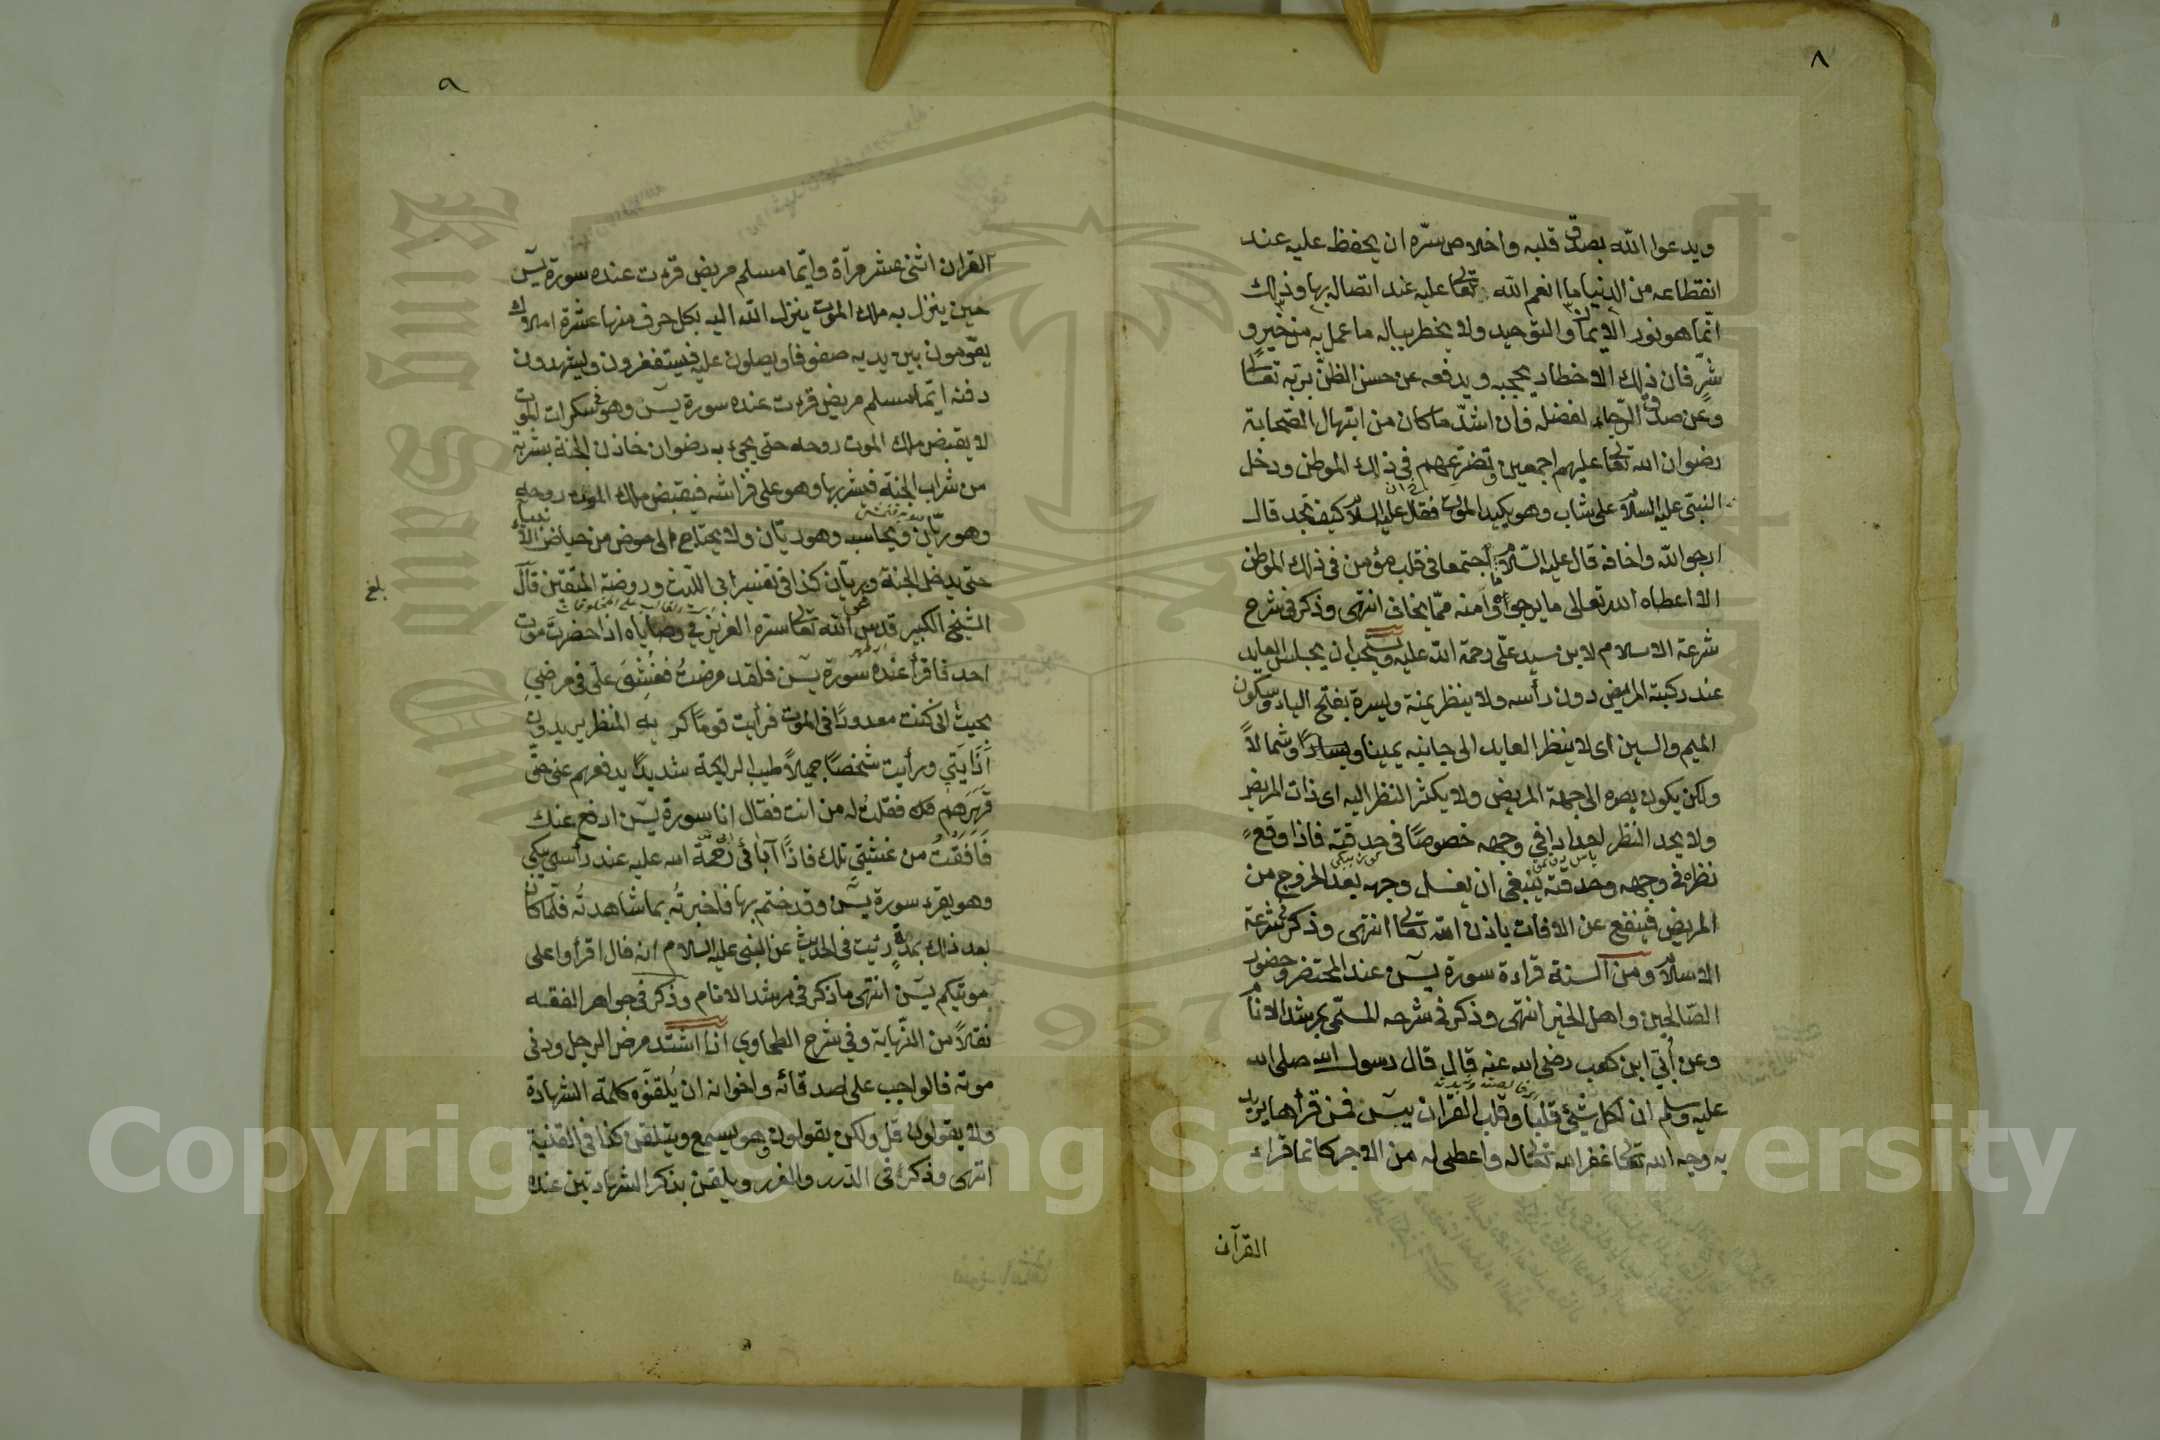 ٨
ويدعوا الله بصدق قلبه واخلاص سرّه ان يحفظ عليه عند
انقطاعه من الدنيا ما انعم الله تعالى عليه عند اتصاله بها وذلك
انّما هو نور الايمان والتوحيد ولا يخطر بباله ما عمل به من خير و
شرّ فان ذلك الاخطار يحجبه ويدفعه عن حسن الظنّ بربّه تعالى
وعن صدق الرّجاء لفضله فان اشدّ ما كان من ابتهال الصّحابة
رضوان الله تعالى عليهم اجمعين وتضرّعهم في ذلك الموطن ودخل
النبيّ عليه السلام على شاب وهو يكيد الموت فقال عليه السلام كيف تجد قال
ارجو الله واخافه قال عليه السّلام ما اجتمعا في قلب مؤمن في ذلك الموطن
الا اعطاه الله تعالى ما يرجوا وآمنه ممّا يخاف انتهى وذكر في شرح
شرعة الاسلام لابن سيد عليّ رحمة الله عليه ويستحب ان يجلس العايد
عند ركبة المريض دون رأسه ولا ينظر يمنة ويسرة بفتح الياء وسكون
الميم والسين اى لا ينظر العايد الى جانبه يمينا ويسارًا وشمالاً
ولكن يكون بصره الى جهة المريض ولا يكثر النظر اليه اى ذات المريض
ولا يحد النظر احدادا في وجهه خصوصًا في حدقته فاذا وقع
نظره في وجهه وحدقته ينبغي ان يغسل وجهه بعد الخروج من
المريض فينفع عن الافات باذن الله تعالى انتهى وذكر في شرعة
الاسلام ومن السنة قراءة سورة يس عند المحتضر وحضور
الصّالحين واهل الخير انتهى وذكر في شرحه المسمّى بمرشد الانام
وعن أُبَيّ ابن كعب رضي الله عنه قال قال رسول الله صلى الله
عليه وسلم ان لكل شيئ قلبًا وقلب القرآن يس فمن قرأها يريد
به وجه الله تعالى غفر الله تعالى له واعطى له من الاجر كانما قراء
القرآن
٩
القران اثنى عشر مرآة وايّما مسلم مريض قرءت عنده سورة يس
حين ينزل به ملك الموت ينزل الله اليه بكل حرف منها عشرة املاك
يقومون بين يديه صفوفا ويصلون عليه فيستغفرون ويشهدون
دفنه ايّما مسلم مريض قرءت عنده سورة يس وهو في سكرات الموت
لا يقبض ملك الموت روحه حتى يجئ به رضوان خازن الجنة بشربة
من شراب الجنة فيشربها وهو على فراشه فيقبض ملك الموت روحه
وهو ريّان ويحاسب وهو ريّان ولا يحتاج الى حوض من حياض الانبياء
حتى يدخل الجنة وريّان كذا في تفسير ابى الليث وروضة المتقين قال
الشيخ الكبير قدس الله تعالى سره العزيز في وصاياه اذا حضرت موت
احد فاقرأ عنده سورة يس فلقد مرضتُ فغُشِيَ علىّ في مرضي
بحيث انى كنت معدودًا في الموت فرأيت قوماً كريه المنظر يريدون
اَذَايَتي ورأيت شخصًا جميلاً طيب الرايحة شديدًا يدفعهم عنى حتّى
قهرهم فقلت له من انت فقال انا سورة يس ادفع عنك
فَاَفَقْتُ من غشيتي تلك فاذًا آبائى رحمة الله عليه عند رأسى يبكى
وهو يقرء سورة يس وقد ختم بها فاخبرتُه بما شاهدتُه فلمّا كان
بعد ذلك بمدة رئيت في الحديث عن النبى عليه السلام انه قال اقرأوا على
موتيكم يس انتهى ما ذكر في مرشد الانام وذكر في جواهر الفقه
نقلاً من النّهاية وفي شرح الطحاوي اذا اشتد مرض الرجل ودنى
موته فالواجب على اصدقائه واخوانه ان يُلقنّوه كلمة الشهادة
ولا يقولون قل ولكن يقولون وهو يسمع ويتلقن كذا في القنية
انتهى وذكر في الدّرر والغرر ويلقن بذكر الشهادتين عنده
بلغ
1957
Copyright © King Saud University